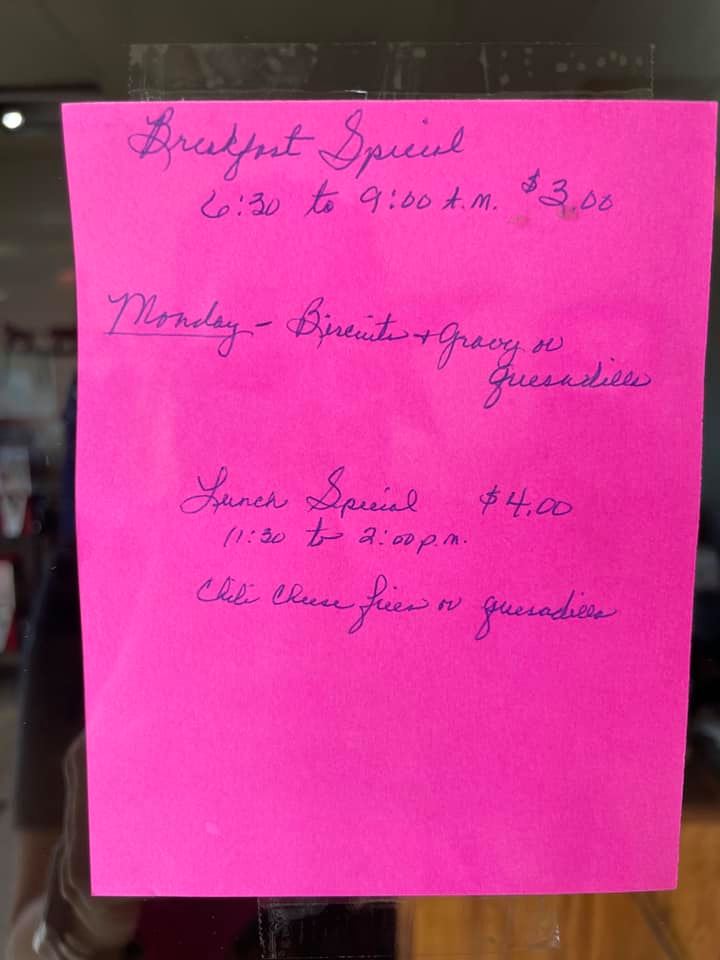 Breakfast Special
6:30 to 9:00 A.M. $3.00
Monday - Biscuits + Gravy or
quesadilla
Lunch Special $4.00
11:30 to 2:00 p.m.
Chili Cheese fries or quesadilla